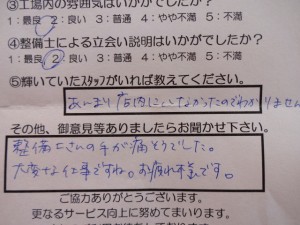 ③工場内の雰囲気はいかがでしたか？
1:最良 2:良い 3:普通 4:やや不満 5:不満
④整備士による立会い説明はいかがでしたか？
1:最良 2:良い 3:普通 4:やや不満 5:不満
⑤輝いていたスタッフがいれば教えてください。
あんまり店内にいなかったのでわかりません
その他、御意見等ありましたらお聞かせ下さい。
整備士さんの手が痛そうでした。
大変な仕事ですね。お疲れ様です。
ご協力ありがとうございます。
更なるサービス向上に努めてまいります。